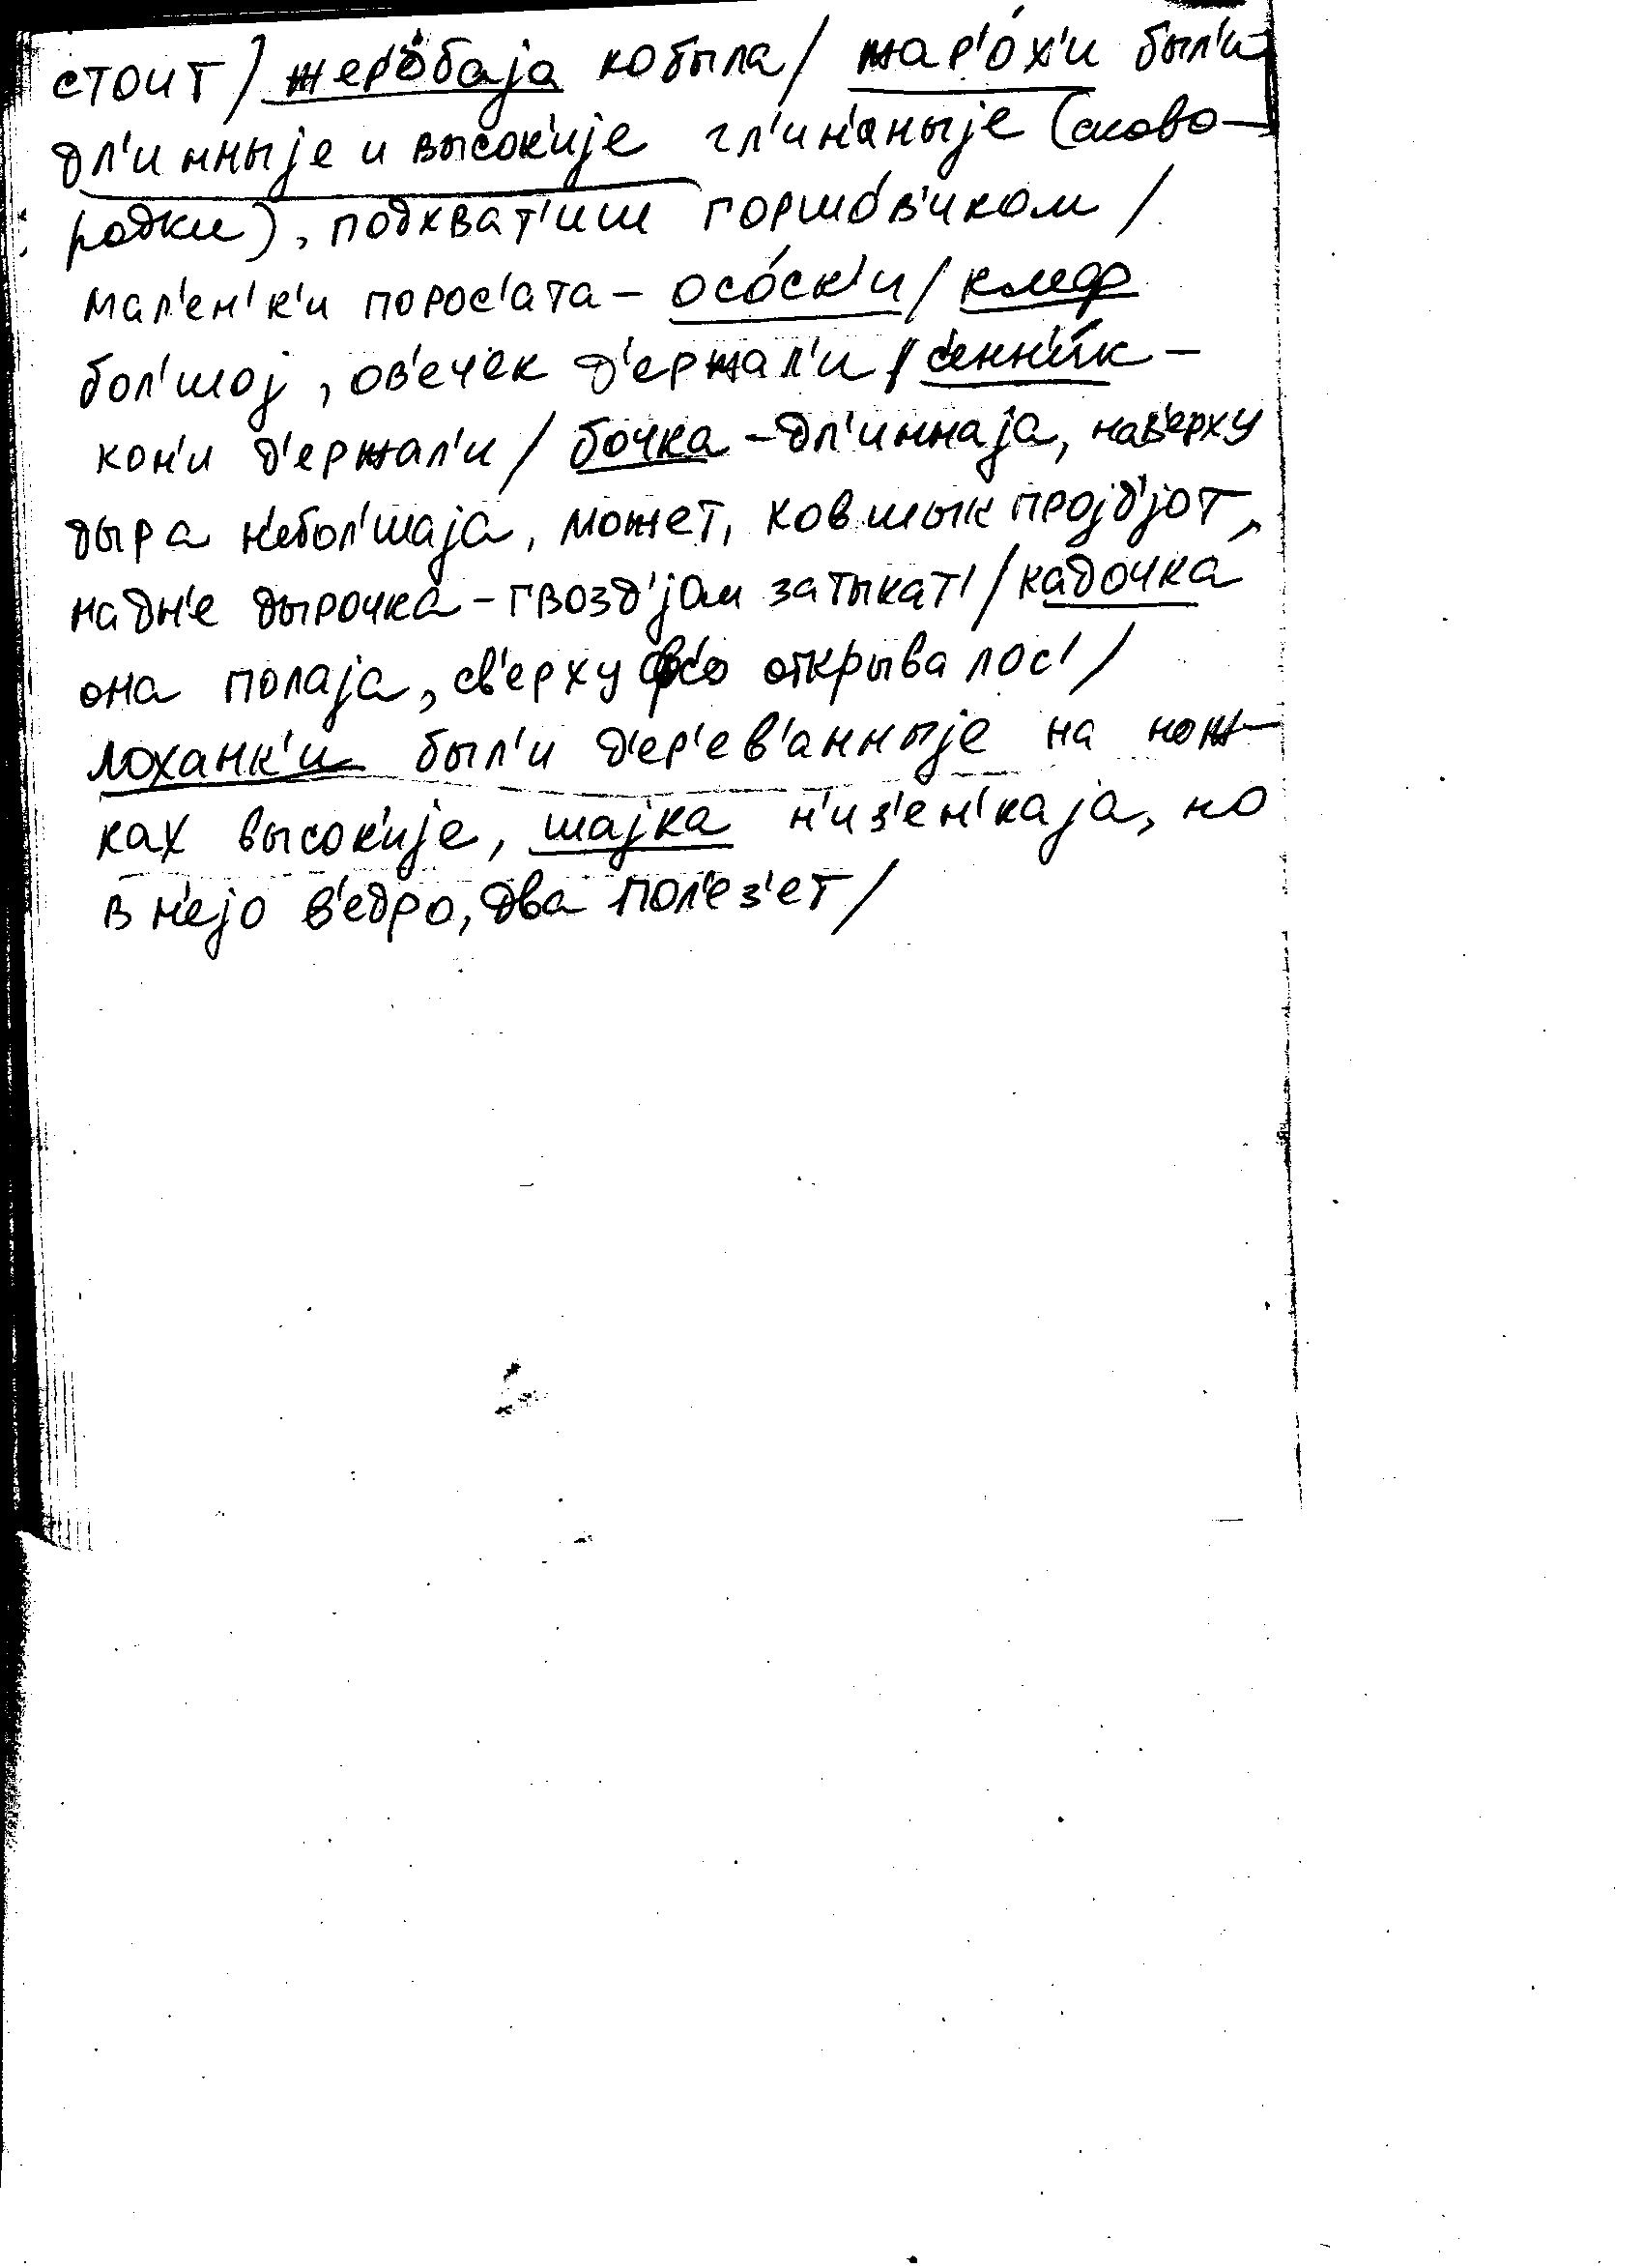 стоит / жер'о́баjа кобыла / жар'о́х'и был'и
дл'инныje и высок'иje гл'ин'аныje (сково-
родки), подхват'иш горшо́в'иком /
мал'ен'к'и порос'ата – осо́ск'и / хлеф
бол'шоj, ов'ечек д'ержал'и / с'енн'и́к –
кон'и д'ержал'и / бочка – дл'иннаjа, нав'ерху
дыра н'ебол'шаjа, может, ковшык проjд'jот,
на дн'е дырочка – гвозд'jам затыкат' / кадочка
она полаjа, св'ерху вс'о открывалос' /
лоханк'и был'и д'ер'ев'анныje на нож-
ках высок'иje, шаjка н'из'ен'каjа, но
в н'еjо в'едро, два пол'ез'ет /